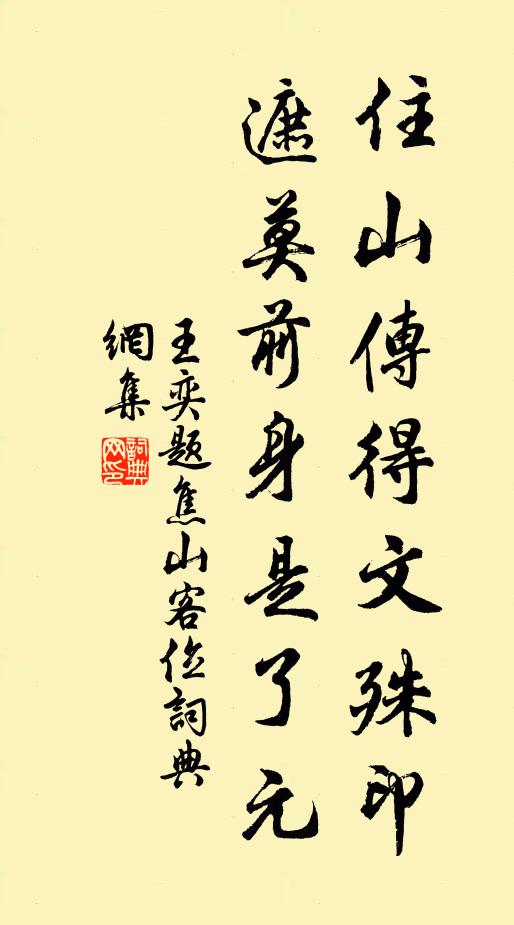 住山傳得文殊印
遮莫前身是了元
王奕題焦山客位詞典
網集
詞典
网印